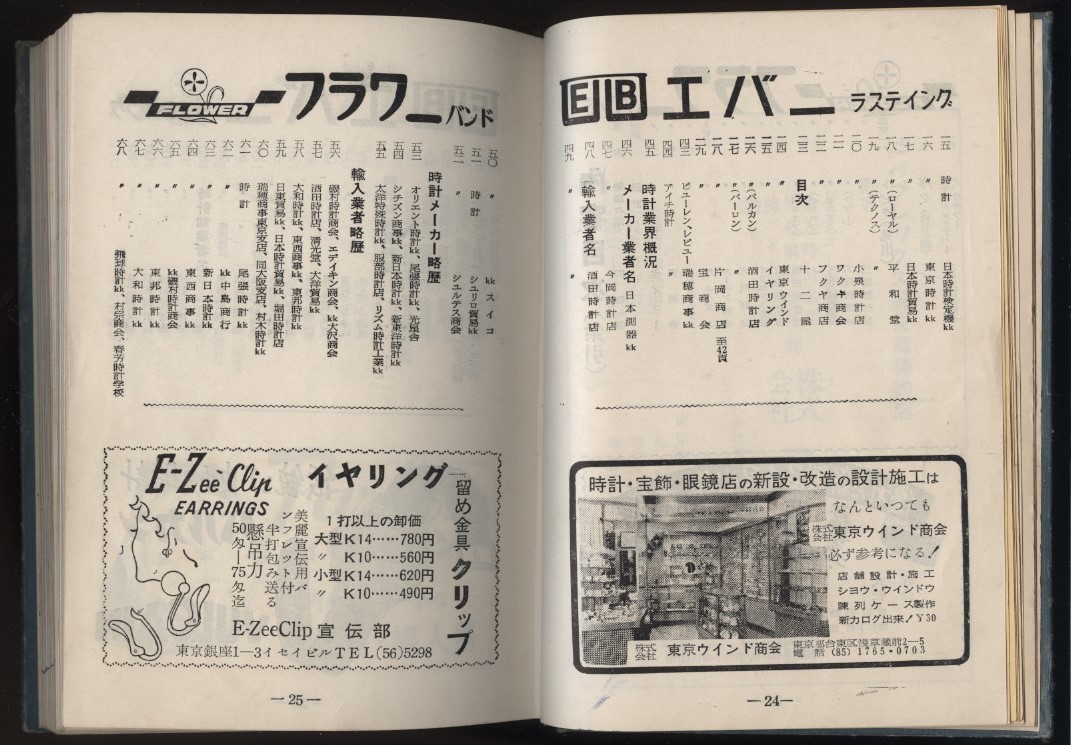 EB エバニー ラスティング
一五 時計 日本時計検定機kk
一六 〃 東京時計kk
一七 〃 日本時計貿易kk
一八 〃(ローヤル) 平和堂
一九 〃(テクノス)
二〇 〃 小泉時計店
二一 〃 ワクキ商会
二二 〃 フクヤ商店
二三 目次 十二屋
二四 〃 東京ウインド
二五 〃 イヤリング
二六 〃(バルカン) 酒田時計店
二七 〃(バーロン)
二八 〃 片岡商店 至42頁
二九 〃 宝商会
四三 ビューレン、レビュー 瑞穂商事kk
四四 アイチ時計 〃
四五 時計業界概況
四六 メーカー業者名 日本測器kk
四七 〃 今岡時計店
四八 輸入業者名 酒田時計店
四九 〃 〃
時計・宝飾・眼鏡店の新設・改造の設計施工は
なんといつても
株式会社 東京ウインド商会
必ず参考になる!
店舗設計・施工
シヨウ・ウインドウ
陳列ケース製作
新カログ出来!¥30
株式会社 東京ウインド商会
東京都台東区浅草蔵前2—5
電話(85)1765・0703
—24—
FLOWER フラワー バンド
五〇 〃 kkスイコ
五一 時計 シュリロ貿易kk
五二 〃 シュルテス商会
時計メーカー略歴
五三 オリエント時計kk、尾張時計kk、光星舎
五四 シチズン商事kk、新日本時計kk、新東洋時計kk
五五 太洋特殊時計kk、服部時計店、リズム時計工業kk
輸入業者略歴
五六 磯村時計商会、エデイキン商会、kk大沢商会
五七 酒田時計店、清光堂、大洋貿易kk
五八 大和時計kk、東西商事kk、東邦時計kk
五九 日東貿易kk、日本時計貿易kk、堀田時計店
六〇 瑞穂商事東京支店、同大阪支店、村木時計kk
六一 時計 尾張時計kk
六二 〃 kk中島商行
六三 〃 新日本時計kk
六四 〃 東西商事kk
六五 〃 kk磯村時計商会
六六 〃 東邦時計kk
六七 〃 大和時計kk
六八 〃 飛球時計kk、村宗商会、春方時計学校
E-Zeè Clip イヤリング
EARRINGS
留め金具クリップ
1打以上の卸価
大型K14……780円
〃 K10……560円
小型K14……620円
〃 K10……490円
美麗宣伝用パ
ンフレツト付
半打包み送る
懸吊力
50匁—75匁迄
E-ZeeClip 宣伝部
東京銀座1—3イセイビル TEL(56)5298
—25—